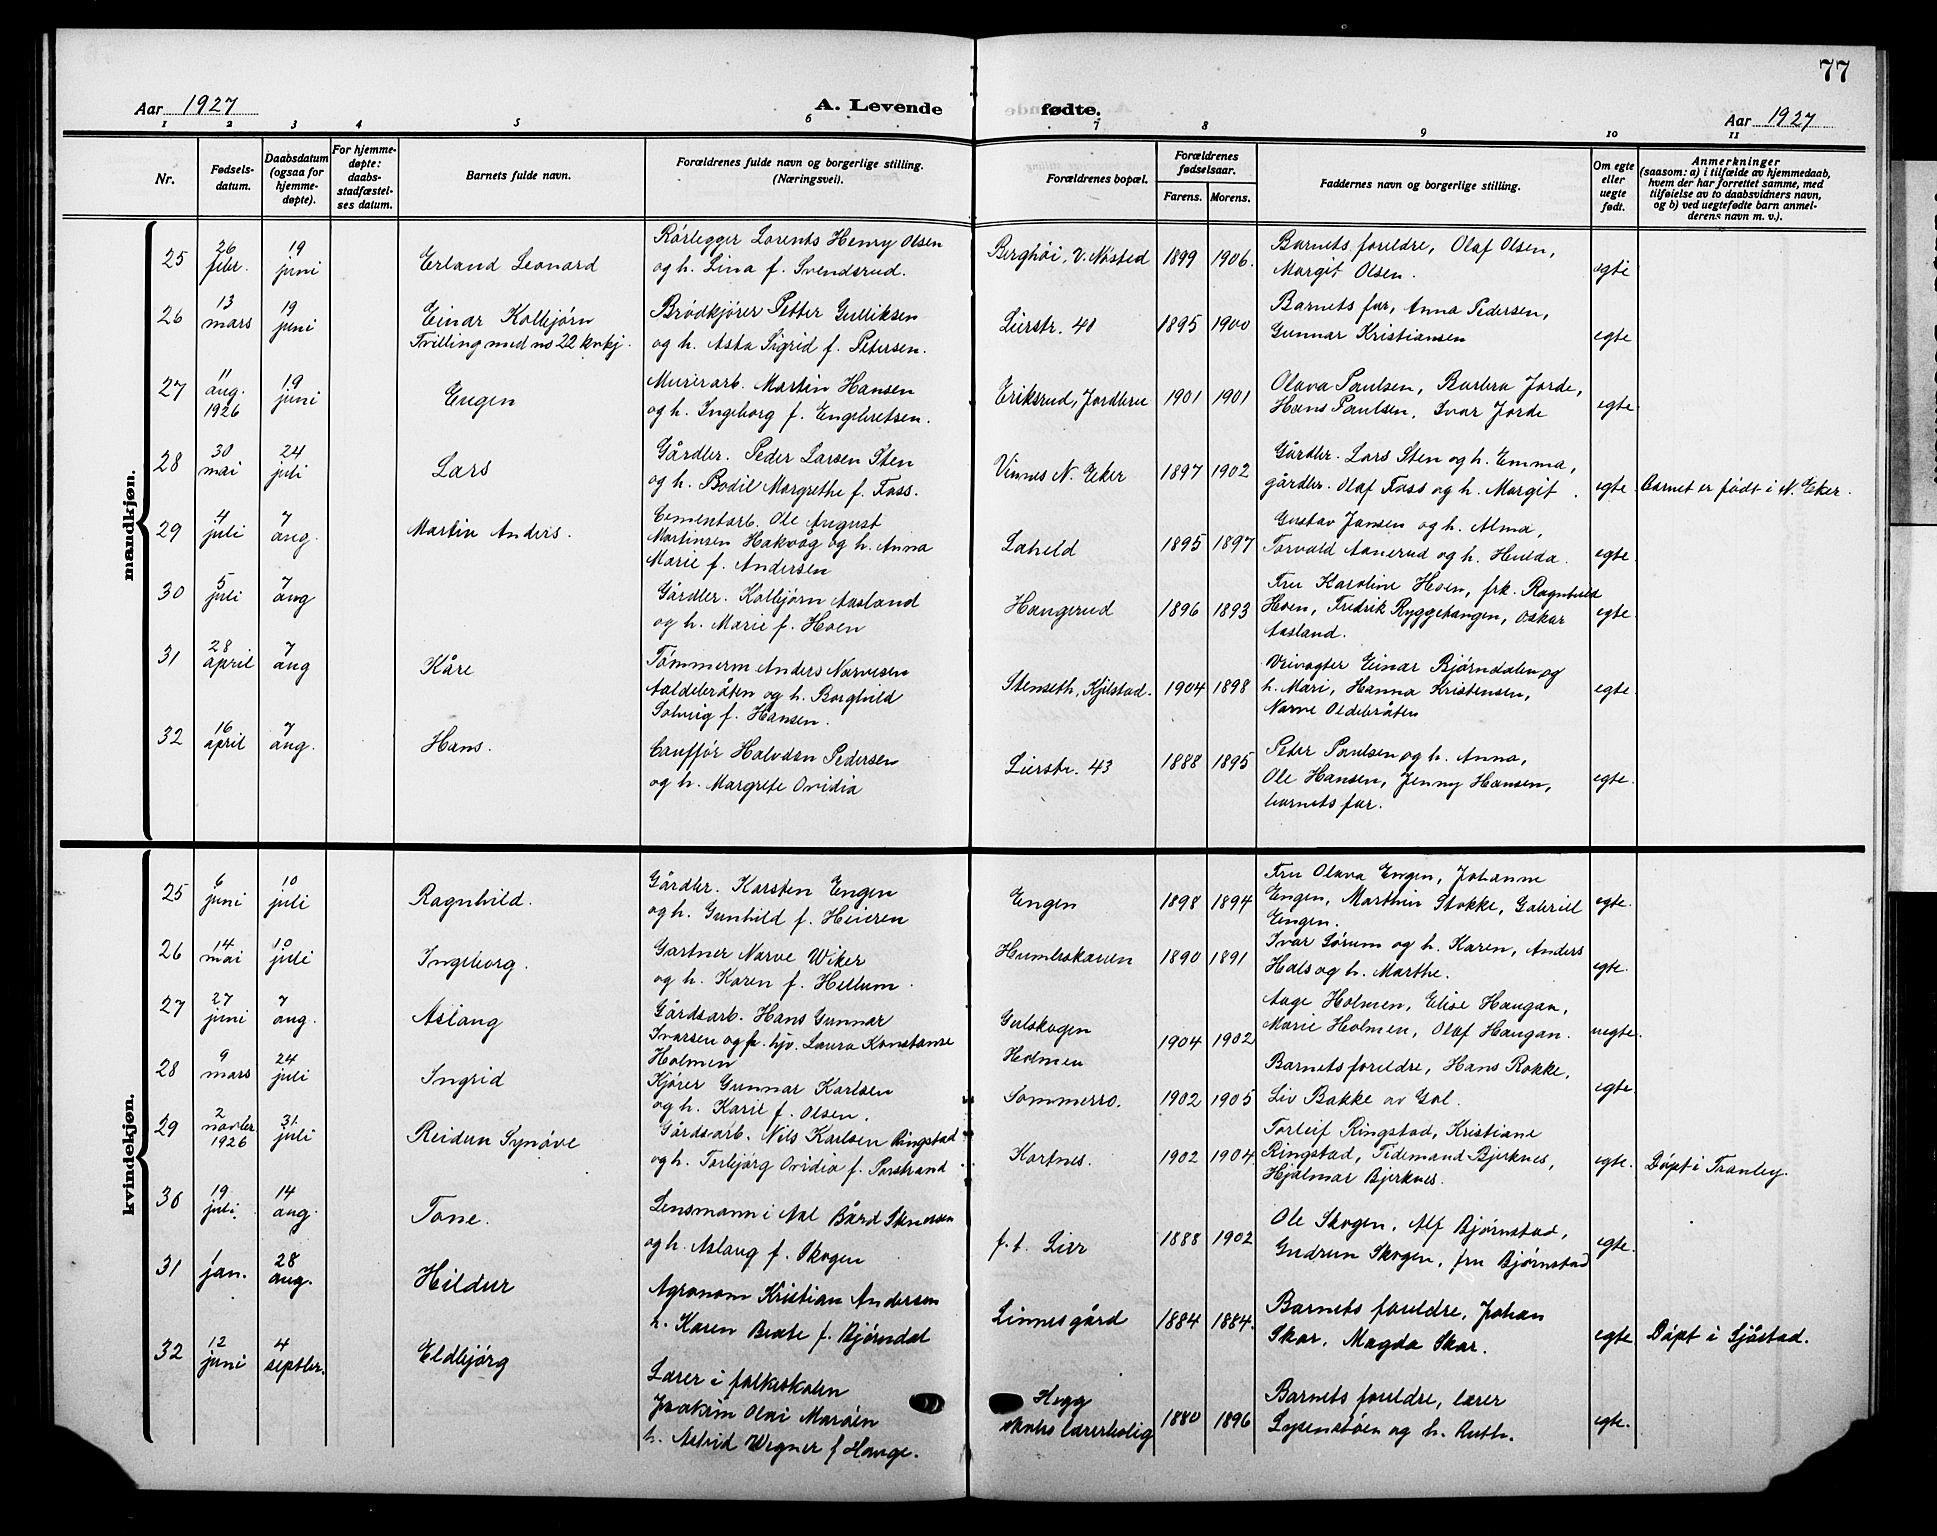 77
Aar 1927
A. Levende
fødte.
Aar 1927
1 2 3 4 5 6 7 8 9 10 11
Nr.
Fødsels-
datum.
Daabsdatum
(ogsaa for
hjemme-
døpte).
For hjemme-
døpte:
daabs-
stadfæstel-
ses datum.
Barnets fulde navn.
Forældrenes fulde navn og borgerlige stilling.
(Næringsvei).
Forældrenes bopæl.
Forældrenes
fødselsaar.
Farens. Morens.
Faddernes navn og borgerlige stilling.
Om egte
eller
uegte
født.
Anmerkninger
(saasom: a) i tilfælde av hjemmedaab,
hvem der har forrettet samme, med
tilføielse av to daabsvidners navn,
og b) ved uegtefødte barn anmel-
derens navn m. v.).
mandkjøn.
25
26 febr.
19 juni
Erland Leonard
Rørlegger Lorents Henry Olsen
og h. Lina f. Svendsrud.
Berghói, v. Nøsted
1899 1906.
Barnets foreldre, Olaf Olsen,
Margit Olsen.
egte
26
13 mars
19 juni
Einar Kolbjørn
Tvilling med no 22 kvkj.
Brødkjører Petter Gulliksen
og h. Asta Sigrid f. Petersen.
Lierstr. 40
1895 1900
Barnets far, Anna Pedersen,
Gunnar Kristiansen
egte
27
11 aug. 1926
19 juni
Eugen
Murerarb. Martin Hansen
og h. Ingeborg f. Engebretsen.
Eriksrud, Jordbru
1901 1901
Olava Paulsen, Barbra Jorde,
Hans Paulsen, Ivar Jorde
egte
28
30 mai
24 juli
Lars
Gårdbr. Peder Larsen Sten
og h. Bodil Margrethe f. Foss.
Vinnes N. Eker
1897 1902
Gårdbr. Lars Sten og h. Emma,
gårdbr. Olaf Foss og h. Margit.
egte
Barnet er født i N. Eker.
29
4 juli
7 aug.
Martin Anders.
Cementarb. Ole August
Martinsen Hakvåg og h. Anna
Marie f. Andersen
Laheld
1895 1897
Gustav Jansen og h. Alma,
Torvald Aanerud og h. Hulda.
egte
30
5 juli
7 aug
Gårdbr. Kolbjørn Aasland
og h. Marie f. Hoen
Haugerud
1896 1893
Fru Karoline Hoen, frk. Ragnhild
Hoen, Fredrik Ryggetangen, Oskar
Aasland.
egte
31
28 april
7 aug
Kåre
Tømmerm Anders Narvesen
Aaldebråten og h. Borghild
Solveig f. Hansen.
Stenseth, Kjelstad.
1904 1898
Vrivogter Einar Bjørndalen og
h. Mari, Hanna Kristensen,
Narve Oldebråten
egte
32
16 april
7 aug.
Hans.
Cauffør Halvdan Pedersen
og h. Margrete Ovidia
Lierstr. 43
1888 1895
Peter Paulsen og h. Anna,
Ole Hansen, Jenny Hansen,
barnets far.
egte
kvindekjøn.
25
6 juni
10 juli
Ragnhild.
Gårdbr. Karsten Engen
og h. Gunhild f. Heieren
Engen
1898 1894
Fru Olava Engen, Johanne
Engen, Marthin Stokke, Gabriel
Engen.
egte.
26
14 mai
10 juli
Ingeborg.
Gartner Narve Wiker
og h. Karen f. Hellum.
Humleskauen
1890 1891
Ivar Sørum og h. Karen, Anders
Hals og h. Marthe.
egte.
27
27 juni
7 aug.
Aslaug
Gårdsarb. Hans Gunnar
Ivarsen og fr. hjv. Laura Konstanse
Holmen
Gulskogen
Holmen
1904 1902
Aage Holmen, Elise Haugan,
Marie Holmen, Olaf Haugan.
uegte.
28
9 mars
24 juli
Ingrid
Kjører Gunnar Karlsen
og h. Karie f. Olsen.
Sommerro.
1902 1905
Barnets foreldre, Hans Rokke,
Liv Bakke av Gol.
egte
29
2 novbr 1926
31. juli
Reidun Synøve
Gårdsarb. Nils Karlsen Ringstad
og h. Torbjørg Ovidia f. Forstrand.
Kortnes.
1902 1904
Torleif Ringstad, Kristiane
Ringstad, Tidemand Bjerknes,
Hjalmar Bjerknes.
egte.
Døpt i Tranby.
30
19 juli.
14 aug.
Tone.
Lensmann i Aal Bård
og h. Aslaug f. Skogen
f. t. Lier
1888 1902
Ole Skogen, Alf Bjørnstad,
Gudrun Skogen, fru Bjørnstad
egte.
31
jan.
28 aug.
Hildur
Agronom Kristian Andersen
h. Karen Beate f. Bjørndal
Linnesgård
1884 1884.
Barnets foreldre, Johan
Skar, Magda Skar.
egte
Døpt i Sjåstad.
32
12 juni
4 septbr.
Eldbjørg
Lærer i folkeskolen
Joakim Olai Marøen
h. Astrid Wegner f Hauge.
Hegg
skoles lærerbolig
1880 1896
Barnets foreldre, lærer
Lysenstøen og h. Ruth.
egte.